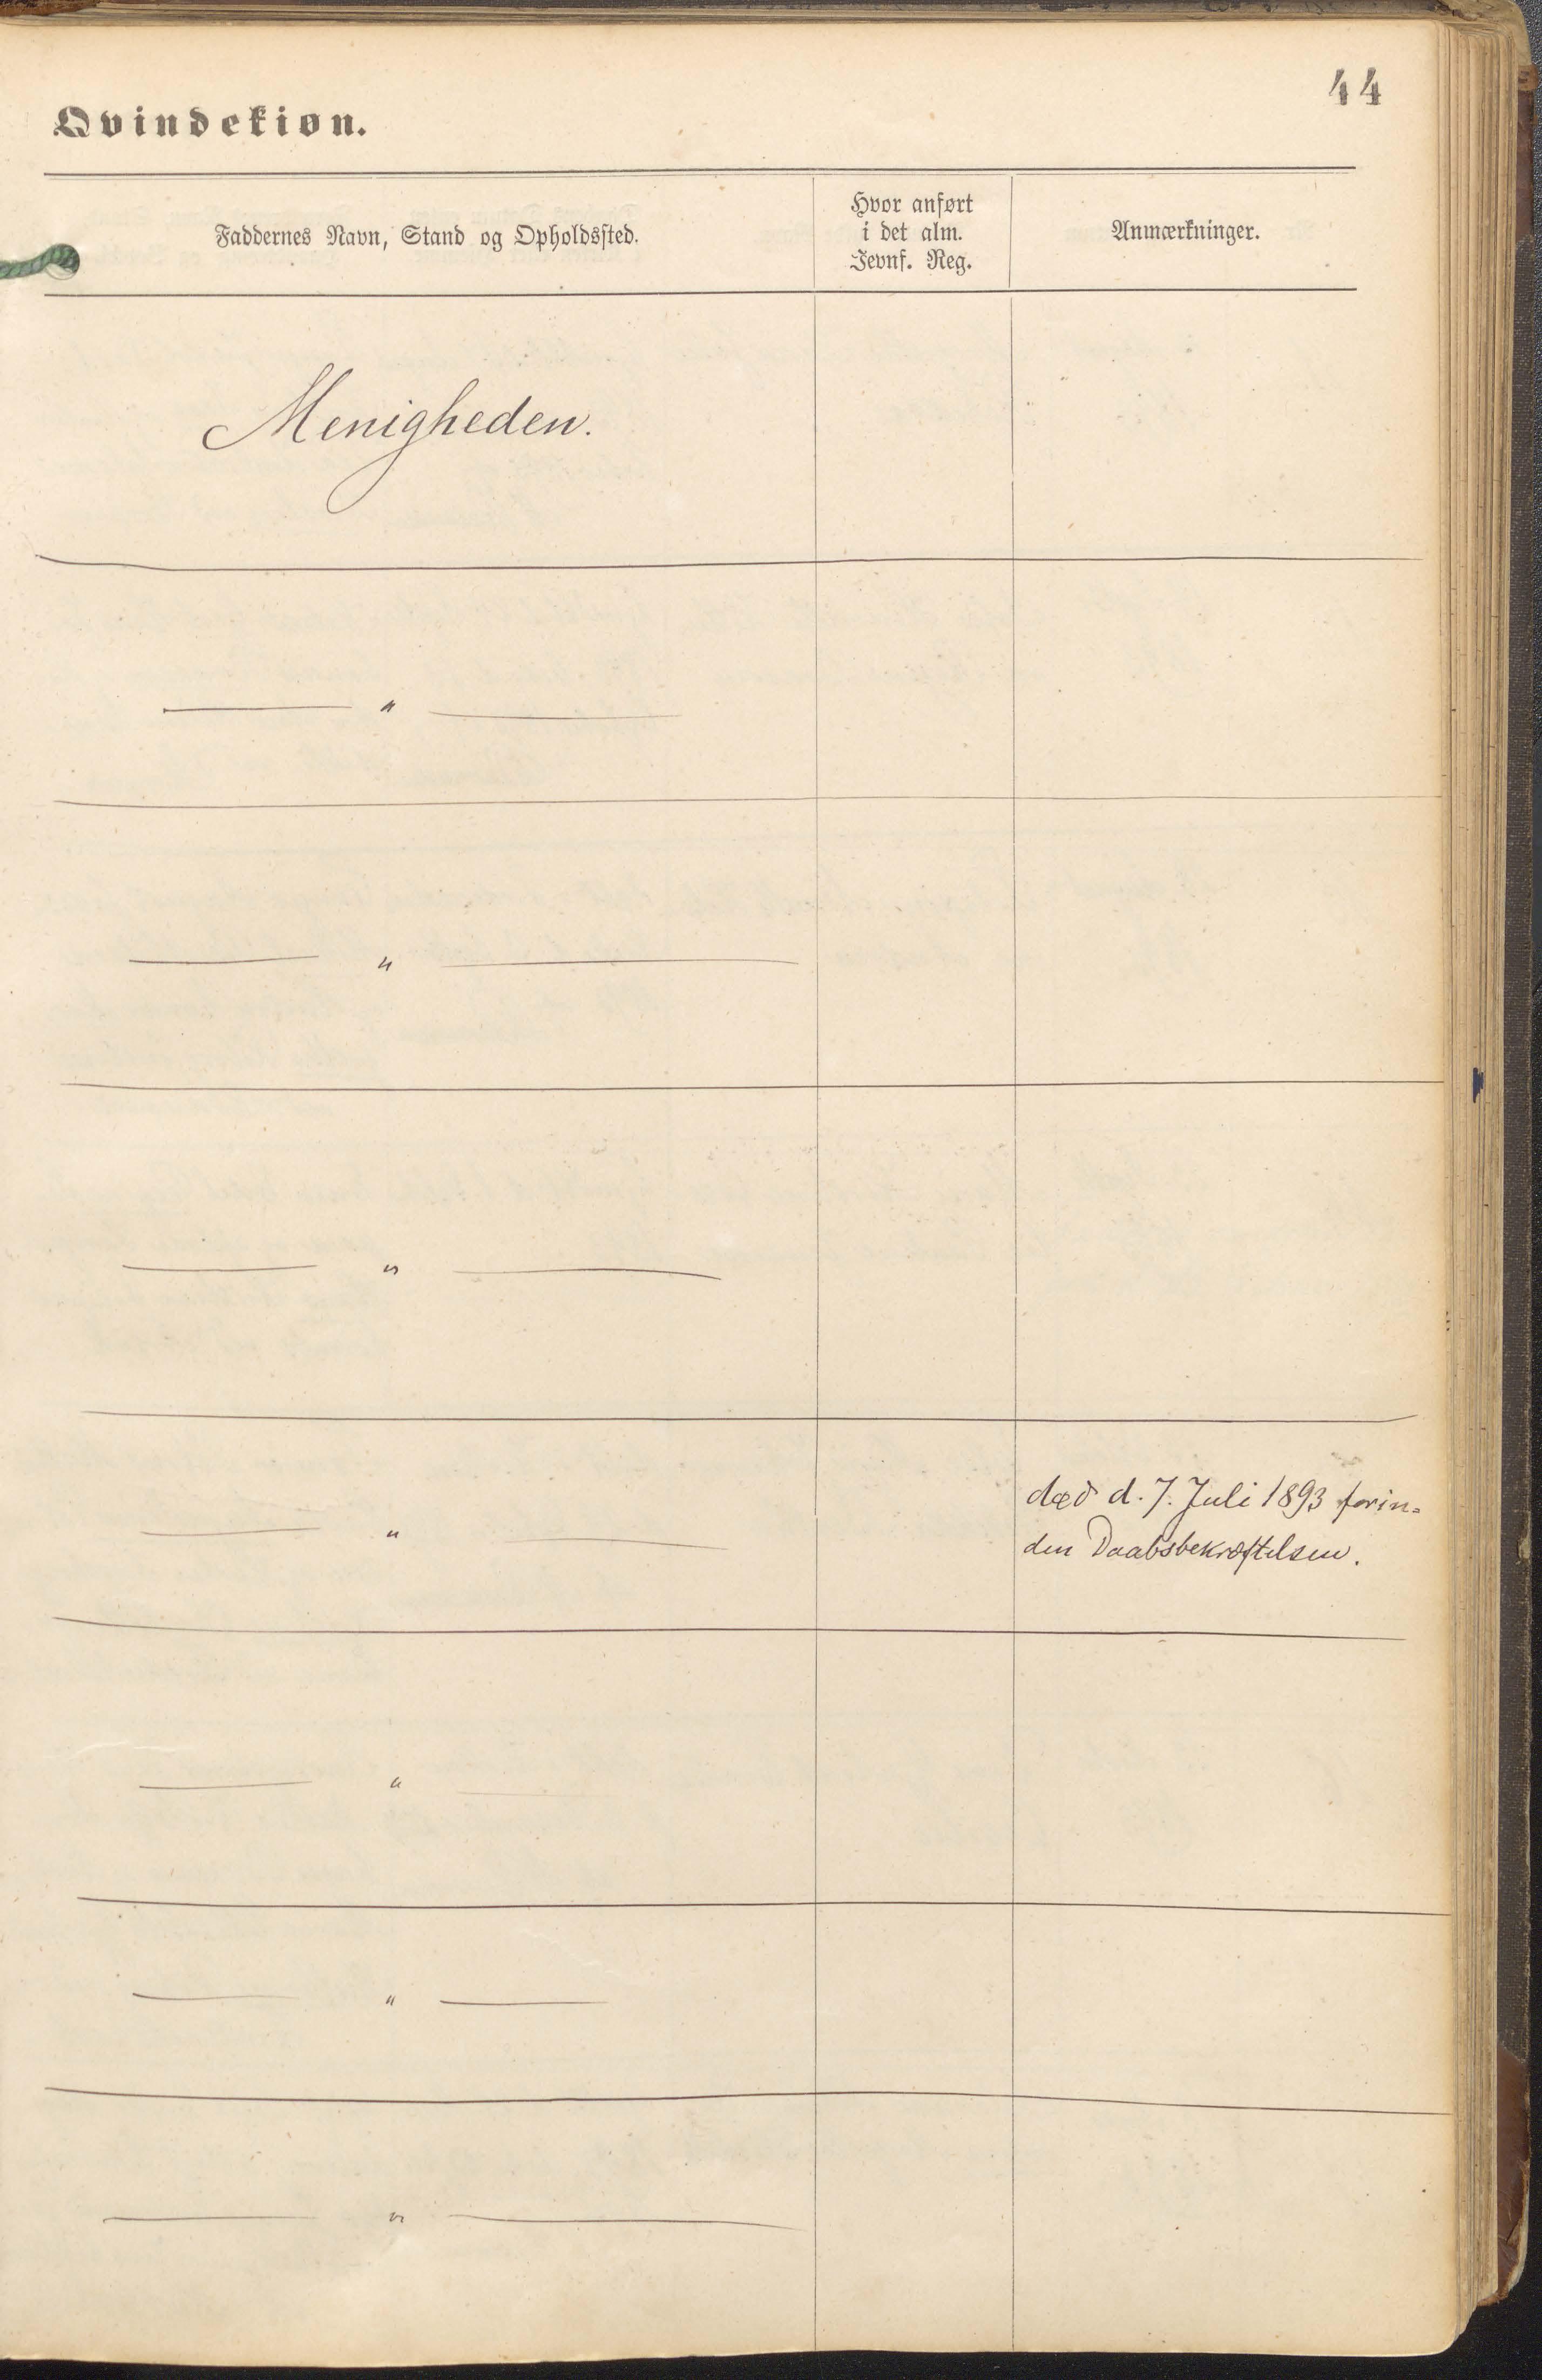 44
Qvindekiøn.
Faddernes Navn, Stand og Opholdssted.
Hvor anført
i det alm.
Jevnf. Reg.
Anmærkninger.
Menigheden.
— " —
— " —
— " —
— " —
død d. 7. Juli 1893 forin=
den Daabsbekræftelsen.
— " —
— " —
— " —